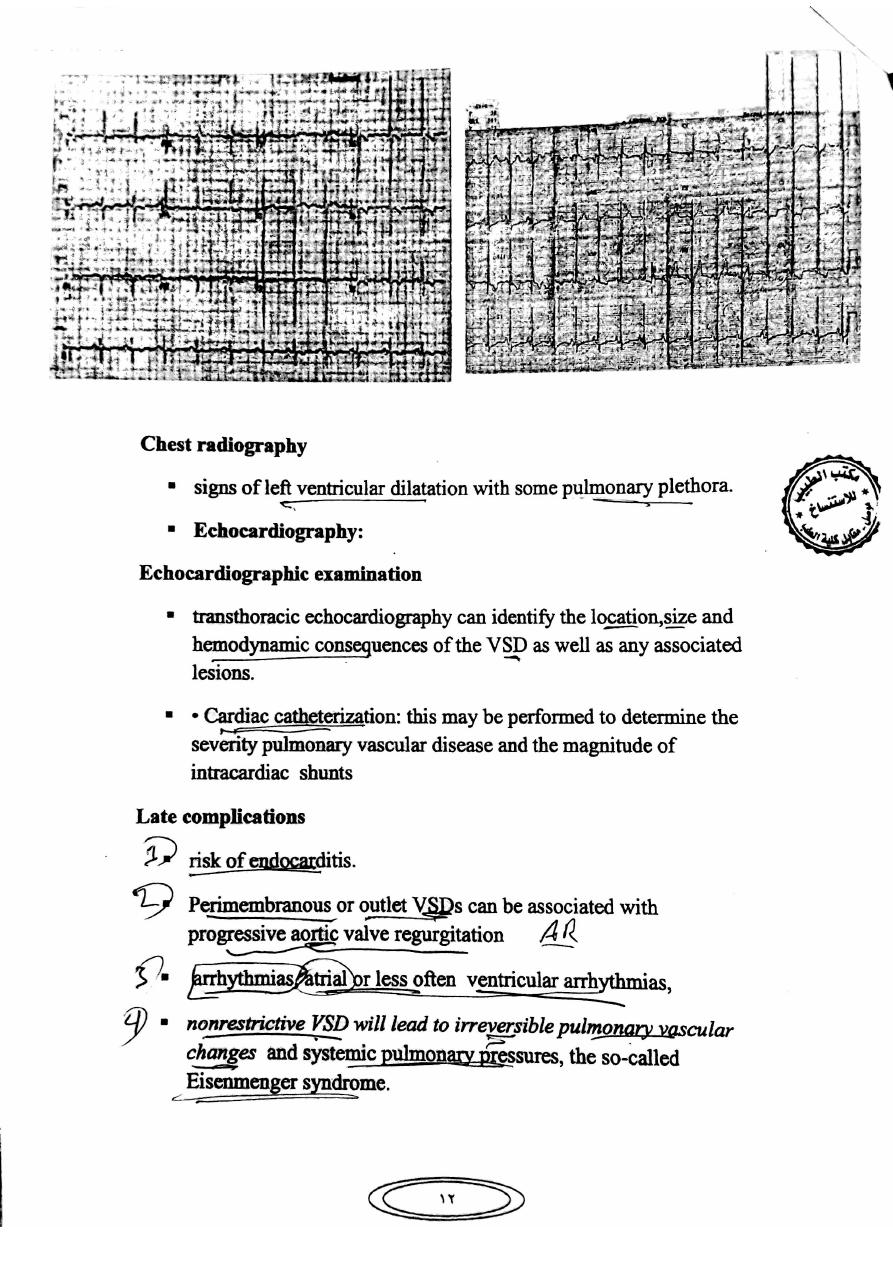 Chest radiography
▪ signs of left ventricular dilatation with some pulmonary plethora.
▪ Echocardiography:
Echocardiographic examination
▪ transthoracic echocardiography can identify the location,size and
hemodynamic consequences of the VSD as well as any associated
lesions.
▪ • Cardiac catheterization: this may be performed to determine the
severity pulmonary vascular disease and the magnitude of
intracardiac shunts
Late complications
1 ▪ risk of endocarditis.
2 ▪ Perimembranous or outlet VSDs can be associated with
progressive aortic valve regurgitation AR
3 ▪ arrhythmias atrial or less often ventricular arrhythmias,
4 ▪ nonrestrictive VSD will lead to irreversible pulmonary vascular
changes and systemic pulmonary pressures, the so-called
Eisenmenger syndrome.
مكتب الطبيب
للاستنساخ
موصل - مقابل كلية الطب
١٢